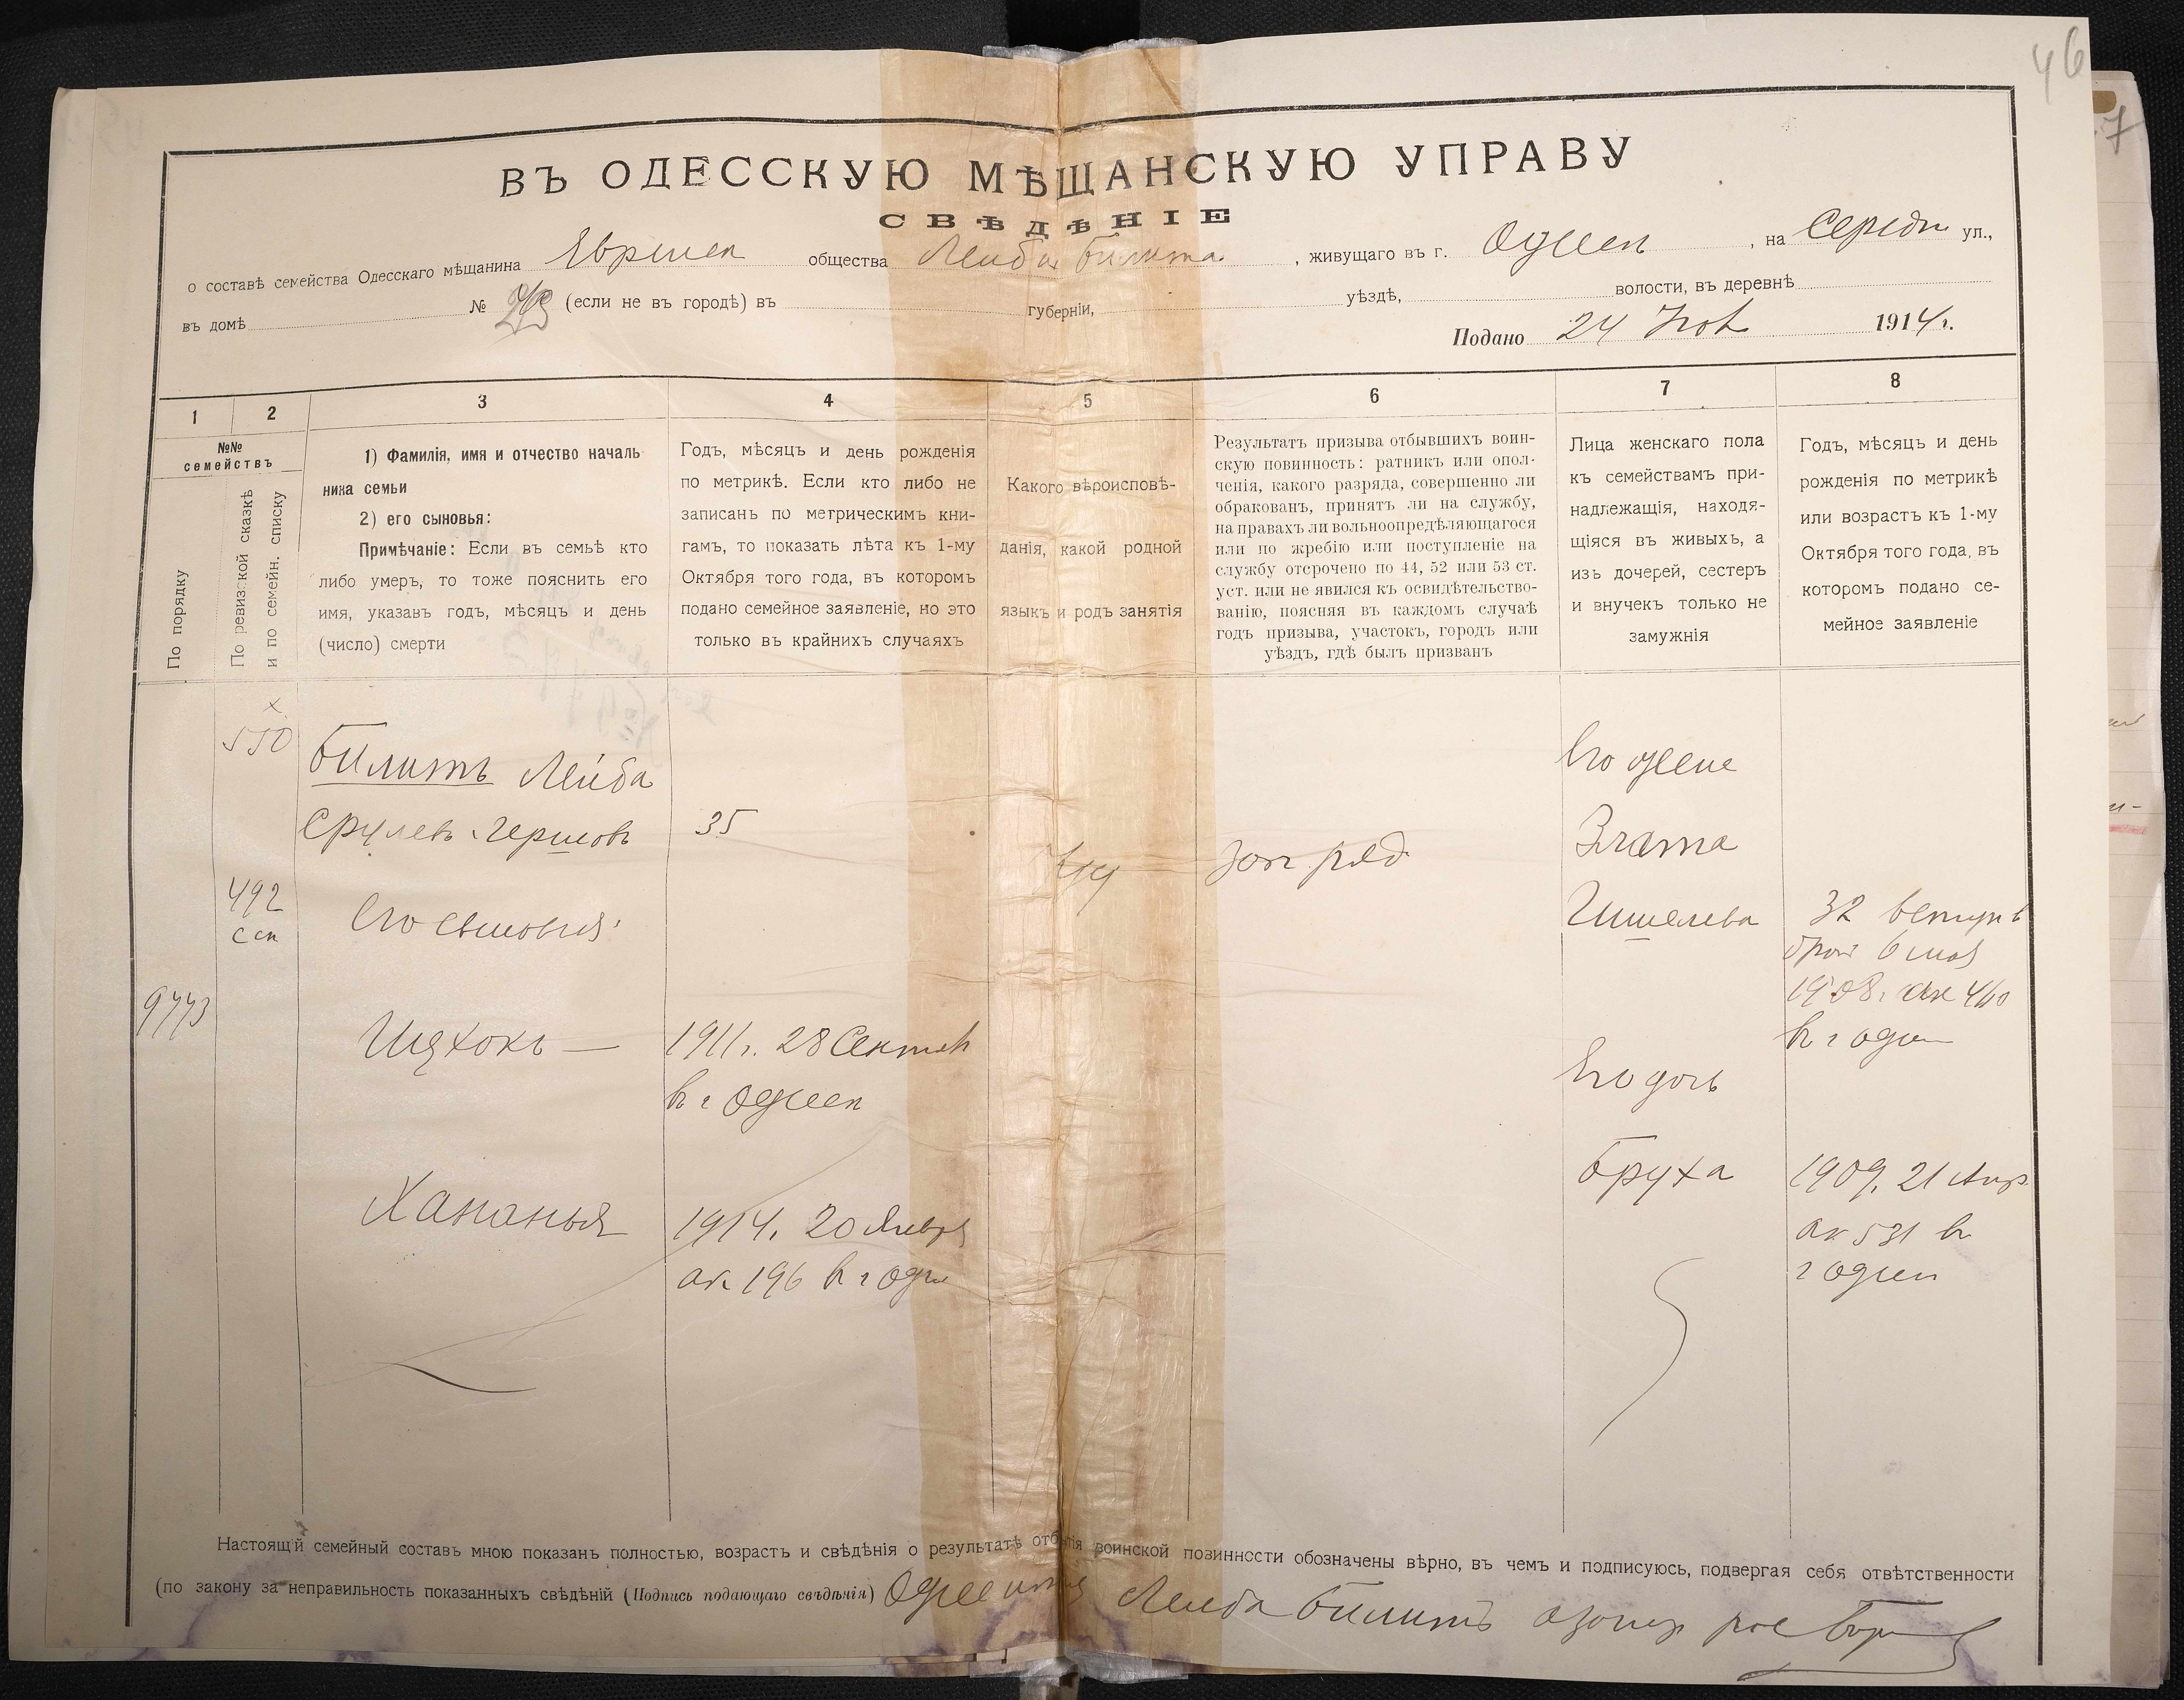 46
7
ВЪ ОДЕССКУЮ МѢЩАНСКУЮ УПРАВУ
СВѢДѢНІЕ
о составѣ семейства Одесскаго мѣщанина Еврейск общества Лейба Билита, живущаго въ г. Одессе, на Середн ул.,
въ домѣ № (если не въ городѣ) въ губерніи, уѣздѣ, волости, въ деревнѣ
Подано 24 Ноя 1914 г.
1 2 3 4 5 6 7 8
№№ семействъ
По порядку
По ревизской сказкѣ и по семейн. списку
1) Фамилія, имя и отчество началь
ника семьи
2) его сыновья:
Примѣчаніе: Если въ семьѣ кто
либо умеръ, то тоже пояснить его
имя, указавъ годъ, мѣсяцъ и день
(число) смерти
Годъ, мѣсяцъ и день рожденія
по метрикѣ. Если кто либо не
записанъ по метрическимъ кни-
гамъ, то показать лѣта къ 1-му
Октября того года, въ которомъ
подано семейное заявленіе, но это
только въ крайнихъ случаяхъ
Какого вѣроисповѣ-
данія, какой родной
языкъ и родъ занятія
Результатъ призыва отбывшихъ воин-
скую повинность: ратникъ или опол-
ченія, какого разряда, совершенно ли
обракованъ, принятъ ли на службу,
на правахъ ли вольноопредѣляющагося
или по жребію или поступленіе на
службу отсрочено по 44, 52 или 53 ст.
уст. или не явился къ освидѣтельство-
ванію, поясняя въ каждомъ случаѣ
годъ призыва, участокъ, городъ или
уѣздъ, гдѣ былъ призванъ
Лица женскаго пола
къ семействамъ при-
надлежащія, находя-
щіяся въ живыхъ, а
изъ дочерей, сестеръ
и внучекъ только не
замужнія
Годъ, мѣсяцъ и день
рожденія по метрикѣ
или возрастъ къ 1-му
Октября того года, въ
которомъ подано се-
мейное заявленіе
х
550
Билитъ Лейба
Срулевъ Гершовъ
35
Иуд
ряд
Его жене
Злата
Гишелева
32 вступ в
брак 6 мая
1908 г. ак 460
в г Одес
492
с сп
Его сыновья:
9773
Ицхокъ
1911 г. 28 Сентяб
в г Одессе
Его дочь
Бруха
1909. 21 Апр
ак 531 в
г Одесс
Хананья
1914. 20 Январ
ак 196 в г Одес
Настоящій семейный составъ мною показанъ полностью, возрастъ и свѣдѣнія о результатѣ отбытія воинской повинности обозначены вѣрно, въ чемъ и подписуюсь, подвергая себя отвѣтственности
(по закону за неправильность показанныхъ свѣдѣній (Подпись подающаго свѣдѣнія) Лейба Билитъ